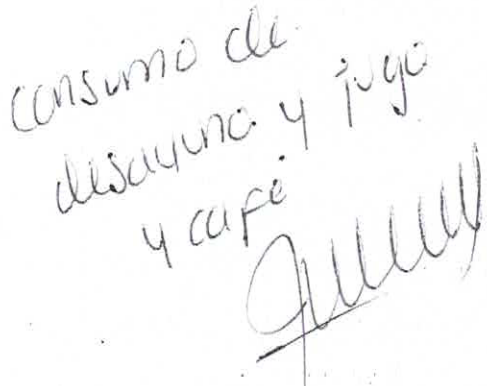 consumo de
desayuno y jugo
y café